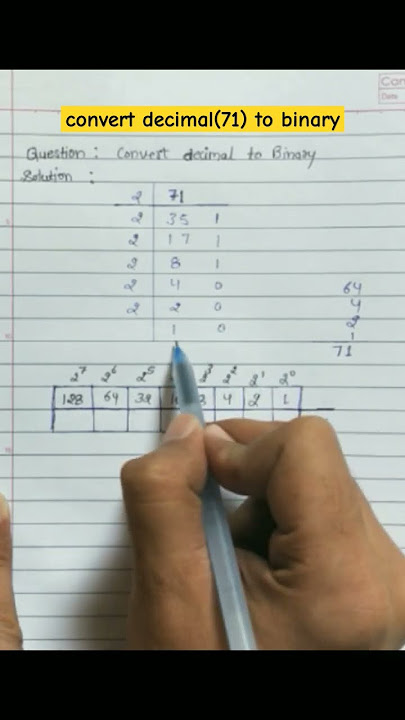 Con
Date
convert decimal(71) to binary
Question : Convert decimal to Binary
Solution :
2 71
2 35 1
2 17 1
2 8 1
2 4 0
2 2 0
1 0
64
4
2
1
71
2⁷ 2⁶ 2⁵ 2³ 2² 2¹ 2⁰
128 64 32 4 2 1